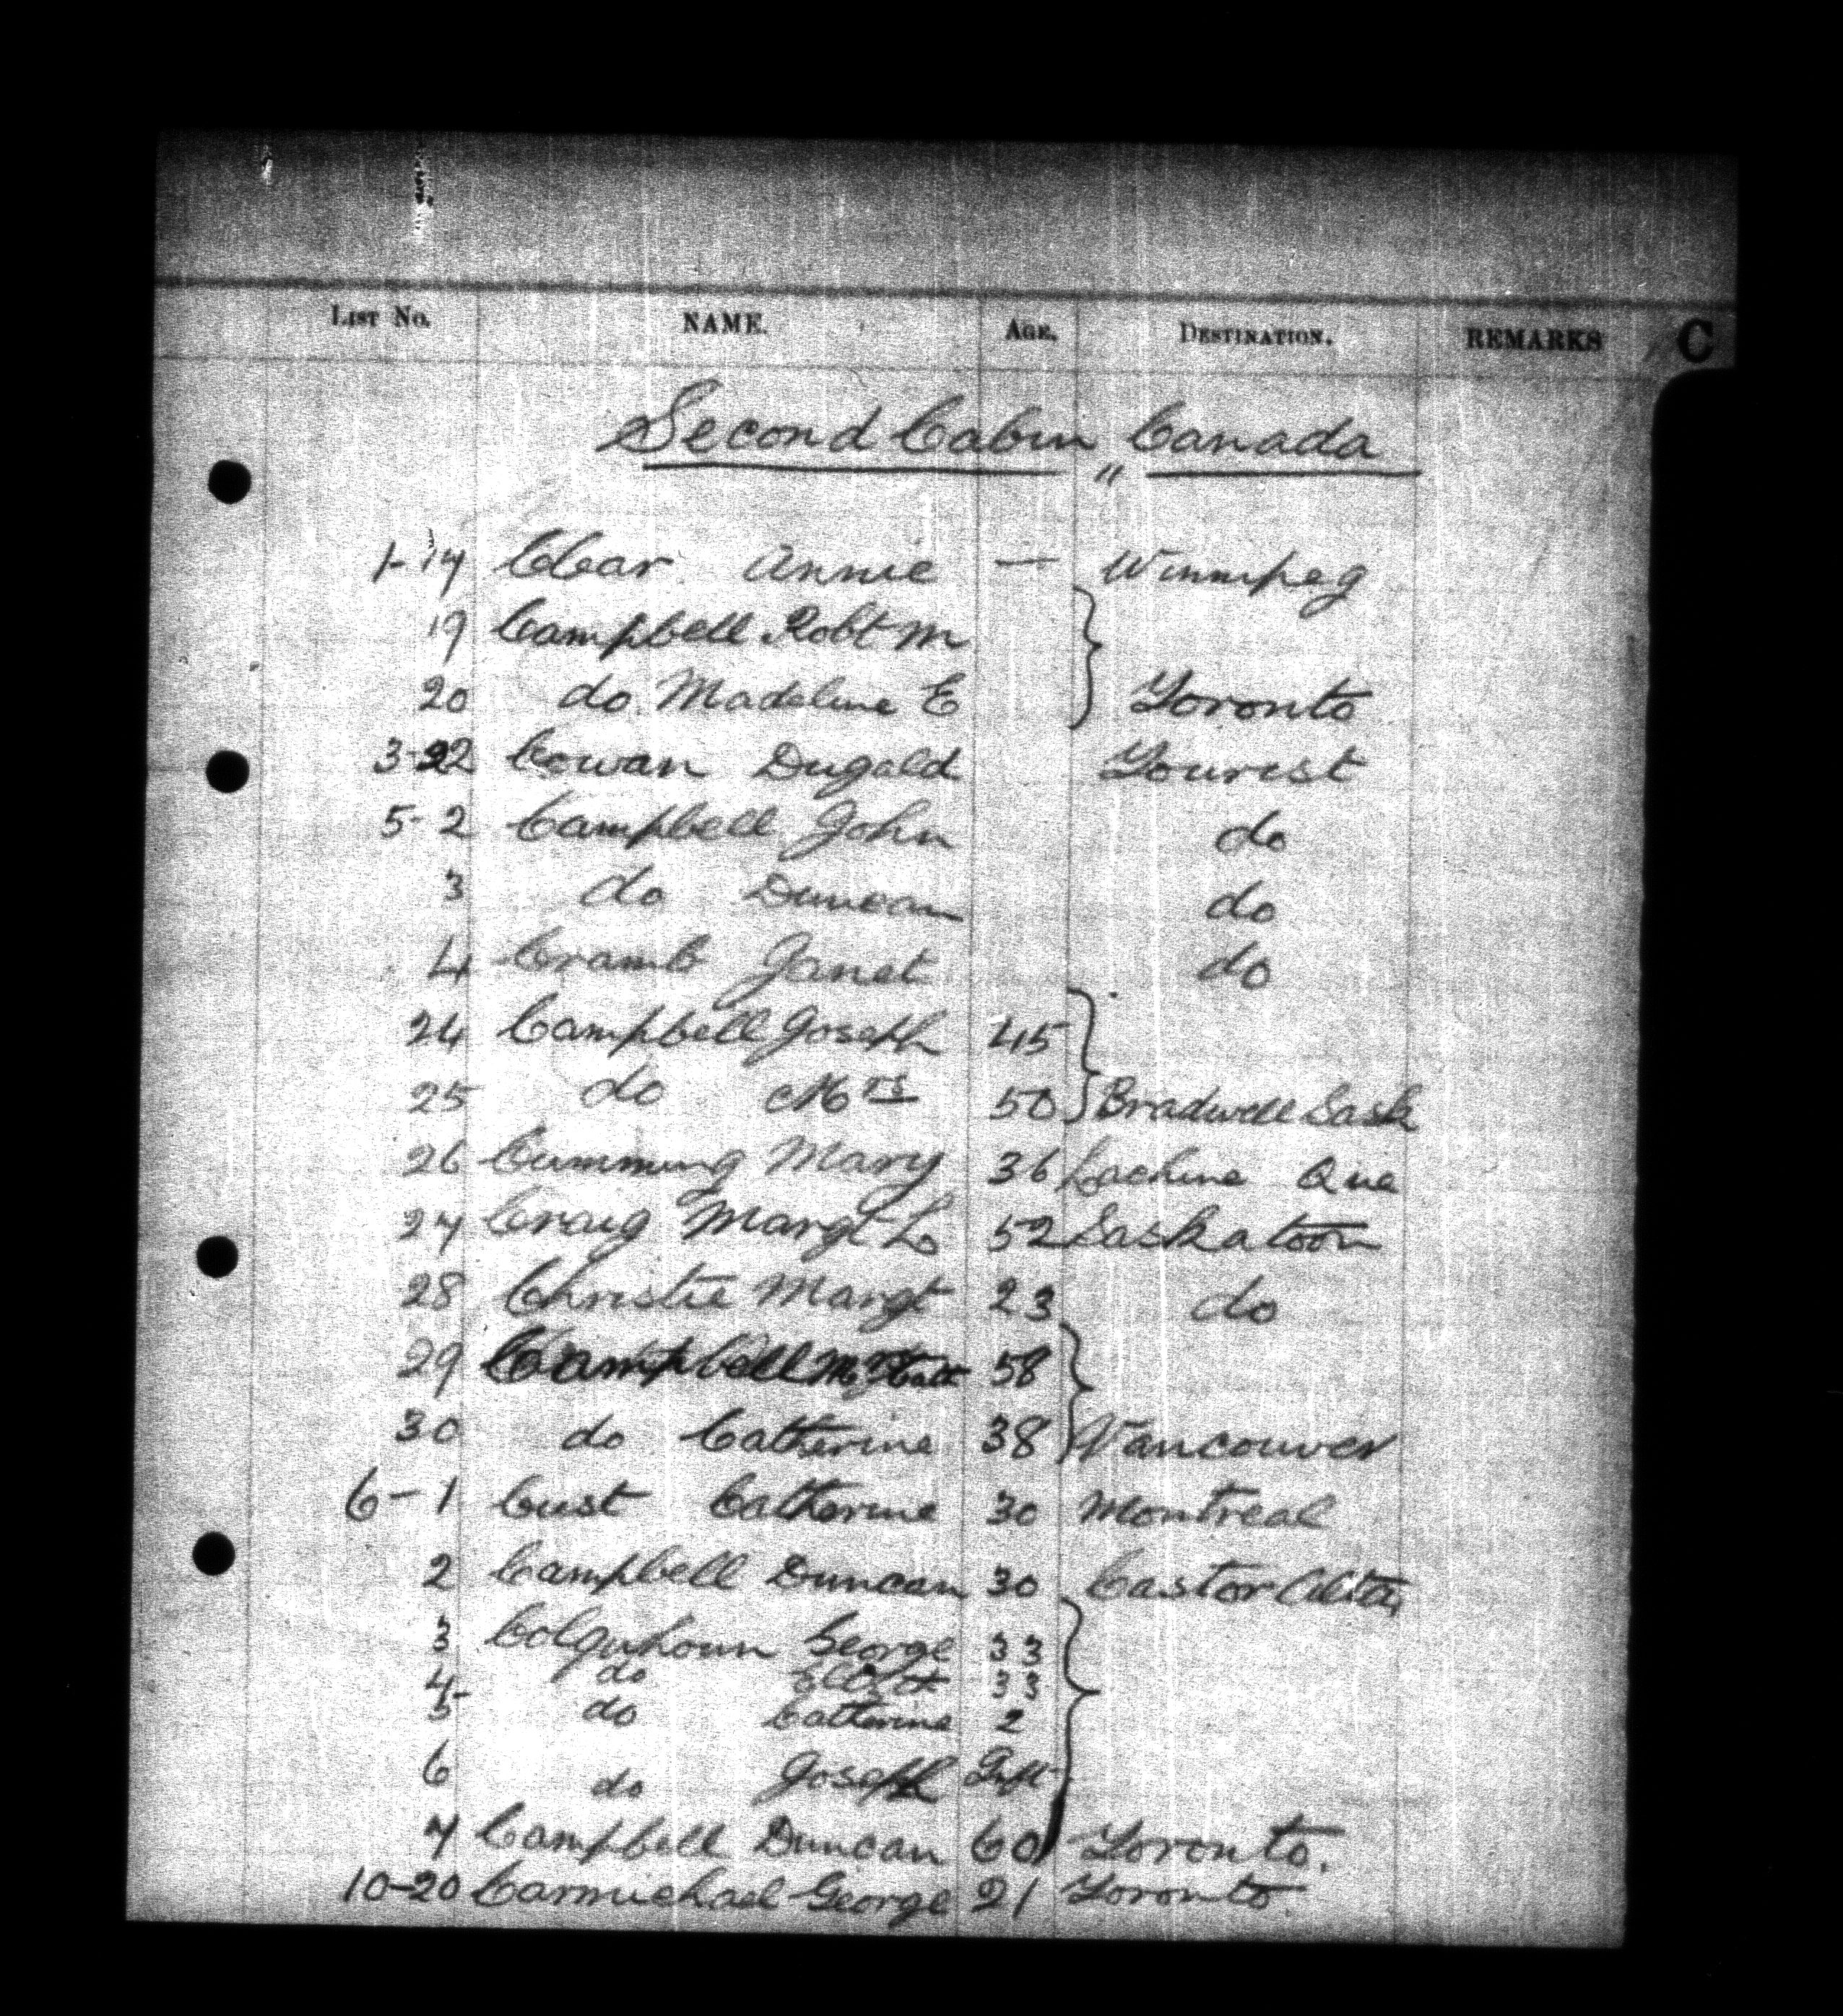 LIST NO. NAME. AGE. DESTINATION. REMARKS C
Second Cabin „ Canada
1-17 Clear Annie — Winnipeg
19 Campbell Robt M
20 do Madeline E } Toronto
3-22 Cowan Dugald Tourist
5-2 Campbell John do
3 do Duncan do
4 Cramb Janet do
24 Campbell Joseph 45
25 do Mrs 50 } Bradwell Sask
26 Cumming Mary 36 Lachine Que
27 Craig Margt L 52 Saskatoon
28 Christie Margt 23 do
29 Campbell 58
30 do Catherine 38 } Vancouver
6-1 Cust Catherine 30 Montreal
2 Campbell Duncan 30 Castor Alta
3 Colquhoun George 33
4 do 33
5 do Catherine 2
6 do Joseph Inft
7 Campbell Duncan 60 } Toronto.
10-20 Carmichael George 21 Toronto.